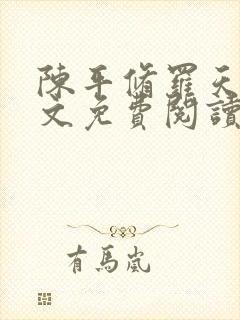 陳平脩羅天
文免費閱讀
有馬嵐